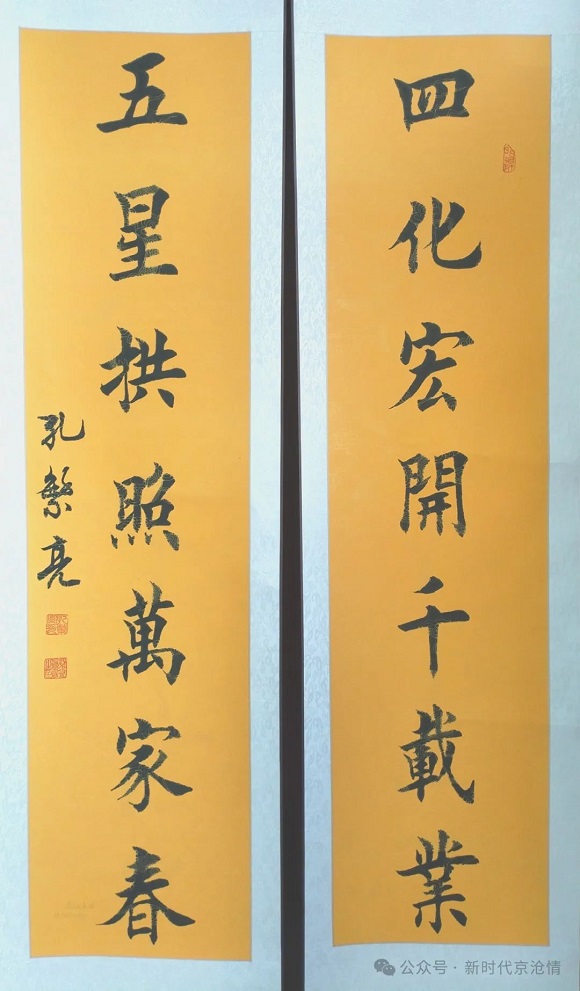 四化宏開千載業
五星拱照萬家春
孔繁亮
公众号·新时代京沧情